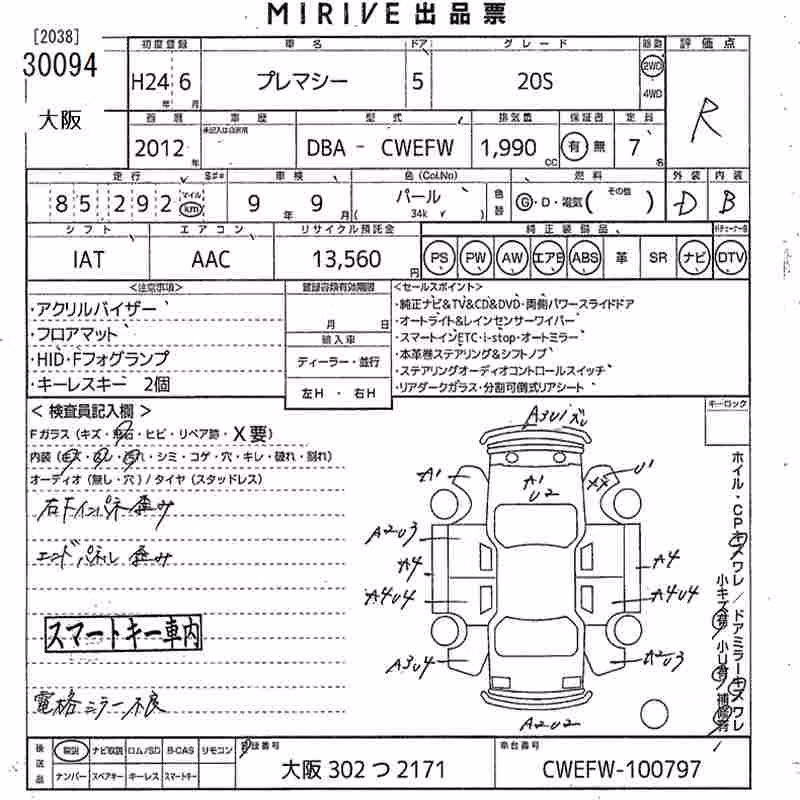 MIRIVE 出品票
[2038]
30094
大阪
初度登録 車名 ドア グレード 駆動 評価点
H24 6 プレマシー 5 20S 2WD 4WD R
年 月
西暦 車歴 型式 排気量 保証書 定員
未記入は自家用
2012年 DBA - CWEFW 1,990 CC 有・無 7名
走行 S## 車検 色(Col.No) 燃料 外装 内装
85,292 マイル km 9年 9月 パール 34k 色替 G・D・電気( その他 ) D B
シフト エアコン リサイクル預託金 純正装備品
IAT AAC 13,560円 PS PW AW エアB ABS 革 SR ナビ DTV
<注意事項> 登録書類有効期限 <セールスポイント>
・アクリルバイザー
・フロアマット
・HID・Fフォグランプ
・キーレスキー 2個
月 日
輸入車
ディーラー・並行
左H ・ 右H
・純正ナビ&TV&CD&DVD・両側パワースライドドア
・オートライト&レインセンサーワイパー
・スマートインETC・i-stop・オートミラー
・本革巻ステアリング&シフトノブ
・ステアリングオーディオコントロールスイッチ
・リアダークガラス・分割可倒式リアシート
キーロック
< 検査員記入欄 >
Fガラス (キズ・飛石・ヒビ・リペア跡・X要)
内装 (キズ・汚れ・シミ・コゲ・穴・キレ・破れ・割れ)
オーディオ (無し・穴) / タイヤ (スタッドレス)
右Fインパネ歪み
エンドパネル 歪み
スマートキー車内
電格ミラー不良
A3U1ズレ
A1
A1
U2
XX
U1
A2U3
A4
A4
A4U4
A4U4
A3U4
A2U3
A2U2
ホイル・CPキズワレ/ドアミラーキズワレ
小キズ有/小U有/補修有
後送品 取説 ナビ取説 ロム/SD B-CAS リモコン
ナンバー スペアキー キーレス スマートキー
登録番号
大阪 302 つ 2171
車台番号
CWEFW-100797